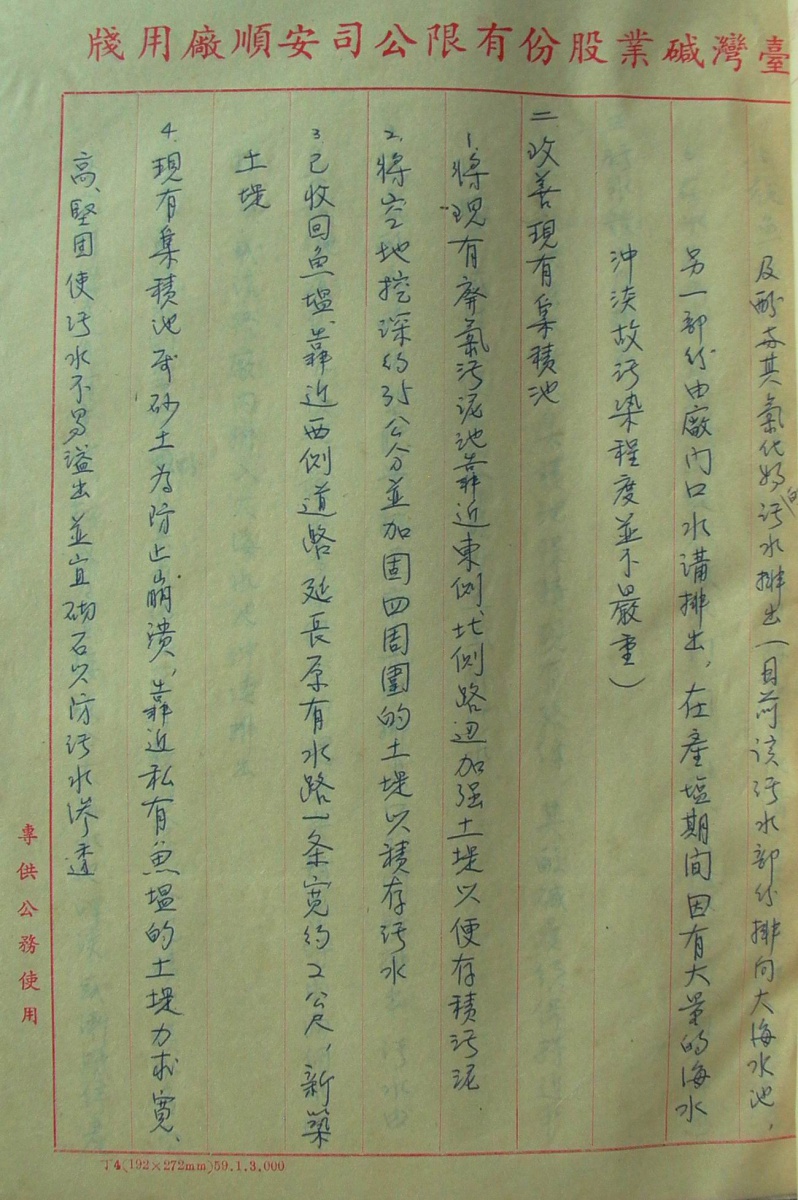 臺灣碱業股份有限公司安順廠用牋
及酚與其氧化物污水排出(目前該污水部份排向大海水池，
另一部份由廠門口水溝排出，在產塩期間因有大量的海水
沖淡故污染程度並不嚴重)
二 改善現有集積池
1. 將現有廢氣污泥池靠近東側、北側路边加强土堤以便存積污泥
2. 將空地挖深約35公分並加固四周圍的土堤以積存污水
3. 已收回魚塭靠近西側道路延長原有水路一条寬約2公尺，新築
土堤
4. 現有集積池砂土為防止崩潰，靠近私有魚塭的土堤力求寬、
高、堅固使污水不易溢出並宜砌石以防污水滲透
專供公務使用
丁4(192×272mm)59.1.3,000